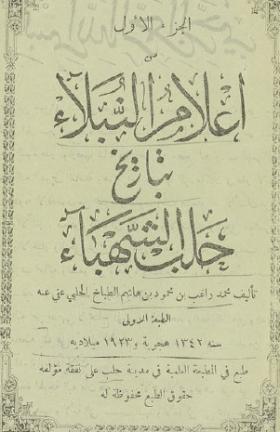 الجزء الاول
من
اعلام النبلاء
بتاريخ
حلب الشهباء
تأليف محمد راغب بن محمود بن هاشم الطباخ الحلبي عفي عنه
الطبعة الاولى
سنة ١٣٤٢ هجرية و ١٩٢٣ ميلادية
طبع في المطبعة العلمية في مدينة حلب على نفقة مؤلفه
حقوق الطبع محفوظة له